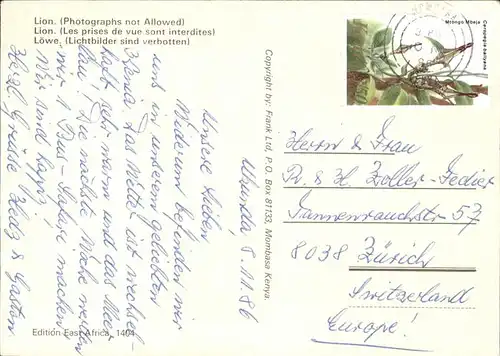 Lion. (Photographs not Allowed)
Lion. (Les prises de vue sont interdites)
Löwe. (Lichtbilder sind verbotten)
Ukunda, 8.11.86
Unsere Lieben
Wiederum befinden wir
uns in unserem geliebten
Kenia. Das Wetter ist wechsel-
haft sehr warm und das Meer
lau. Die nächste Woche werden
wir 1 Bus-Safari machen
Wir sind happy
Herzl. Grüsse Hedy & Gaston
Copyright by: Frank Ltd, P.O. Box 81133, Mombasa Kenya.
Mtongo Mbeja
Ceropegia
Herrn & Frau
Zoller-Fedier
Tannenrauchstr 57
8038 Zürich
Switzerland
Europe!
Edition East Africa, 1404